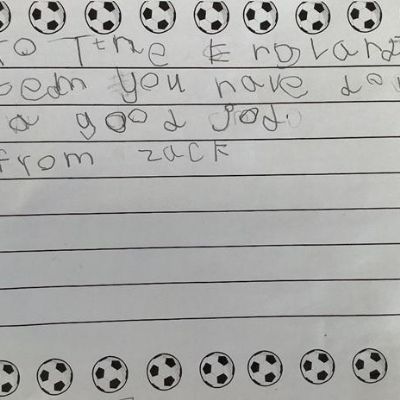 to The England
team you have don
a good jod.
from zack